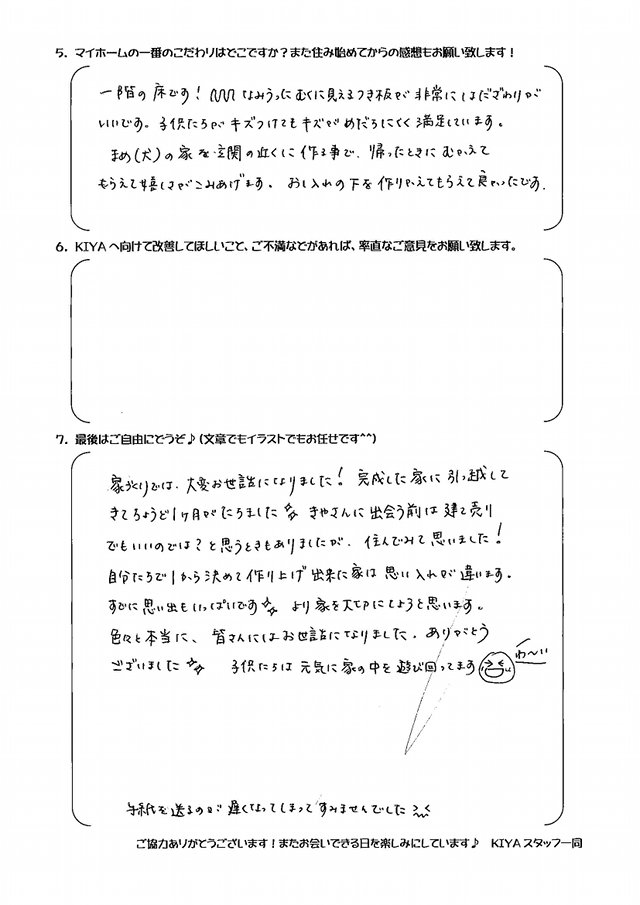 5. マイホームの一番のこだわりはどこですか？また住み始めてからの感想もお願い致します！
一階の床です！ なみうった むくに見えるつき板が 非常に はだざわりが
いいです。子供たちが キズつけても キズが めだちにくく 満足しています。
まめ(犬)の家を玄関の近くに作る事で、帰ったときに むかえて
もらえて嬉しさがこみあげます。 おし入れの下を作りかえてもらえて良かったです.
6. KIYAへ向けて改善してほしいこと、ご不満などがあれば、率直なご意見をお願い致します。
7. 最後はご自由にどうぞ♪(文章でもイラストでもお任せです^^)
家づくりでは、大変お世話になりました！ 完成した家に引っ越して
きてちょうど1ヶ月がたちました きやさんに出会う前は建て売り
でもいいのでは？と思うときもありましたが、住んでみて思いました！
自分たちで1から決めて作り上げ出来た家は思い入れが違います。
すでに思い出もいっぱいです より家を大切にしようと思います。
色々と本当に、皆さんにはお世話になりました. ありがとう
ございました 子供たちは元気に家の中を遊び回ってます わ〜い
手紙を送るのが遅くなってしまってすみませんでした
ご協力ありがとうございます！またお会いできる日を楽しみにしています♪ KIYAスタッフ一同